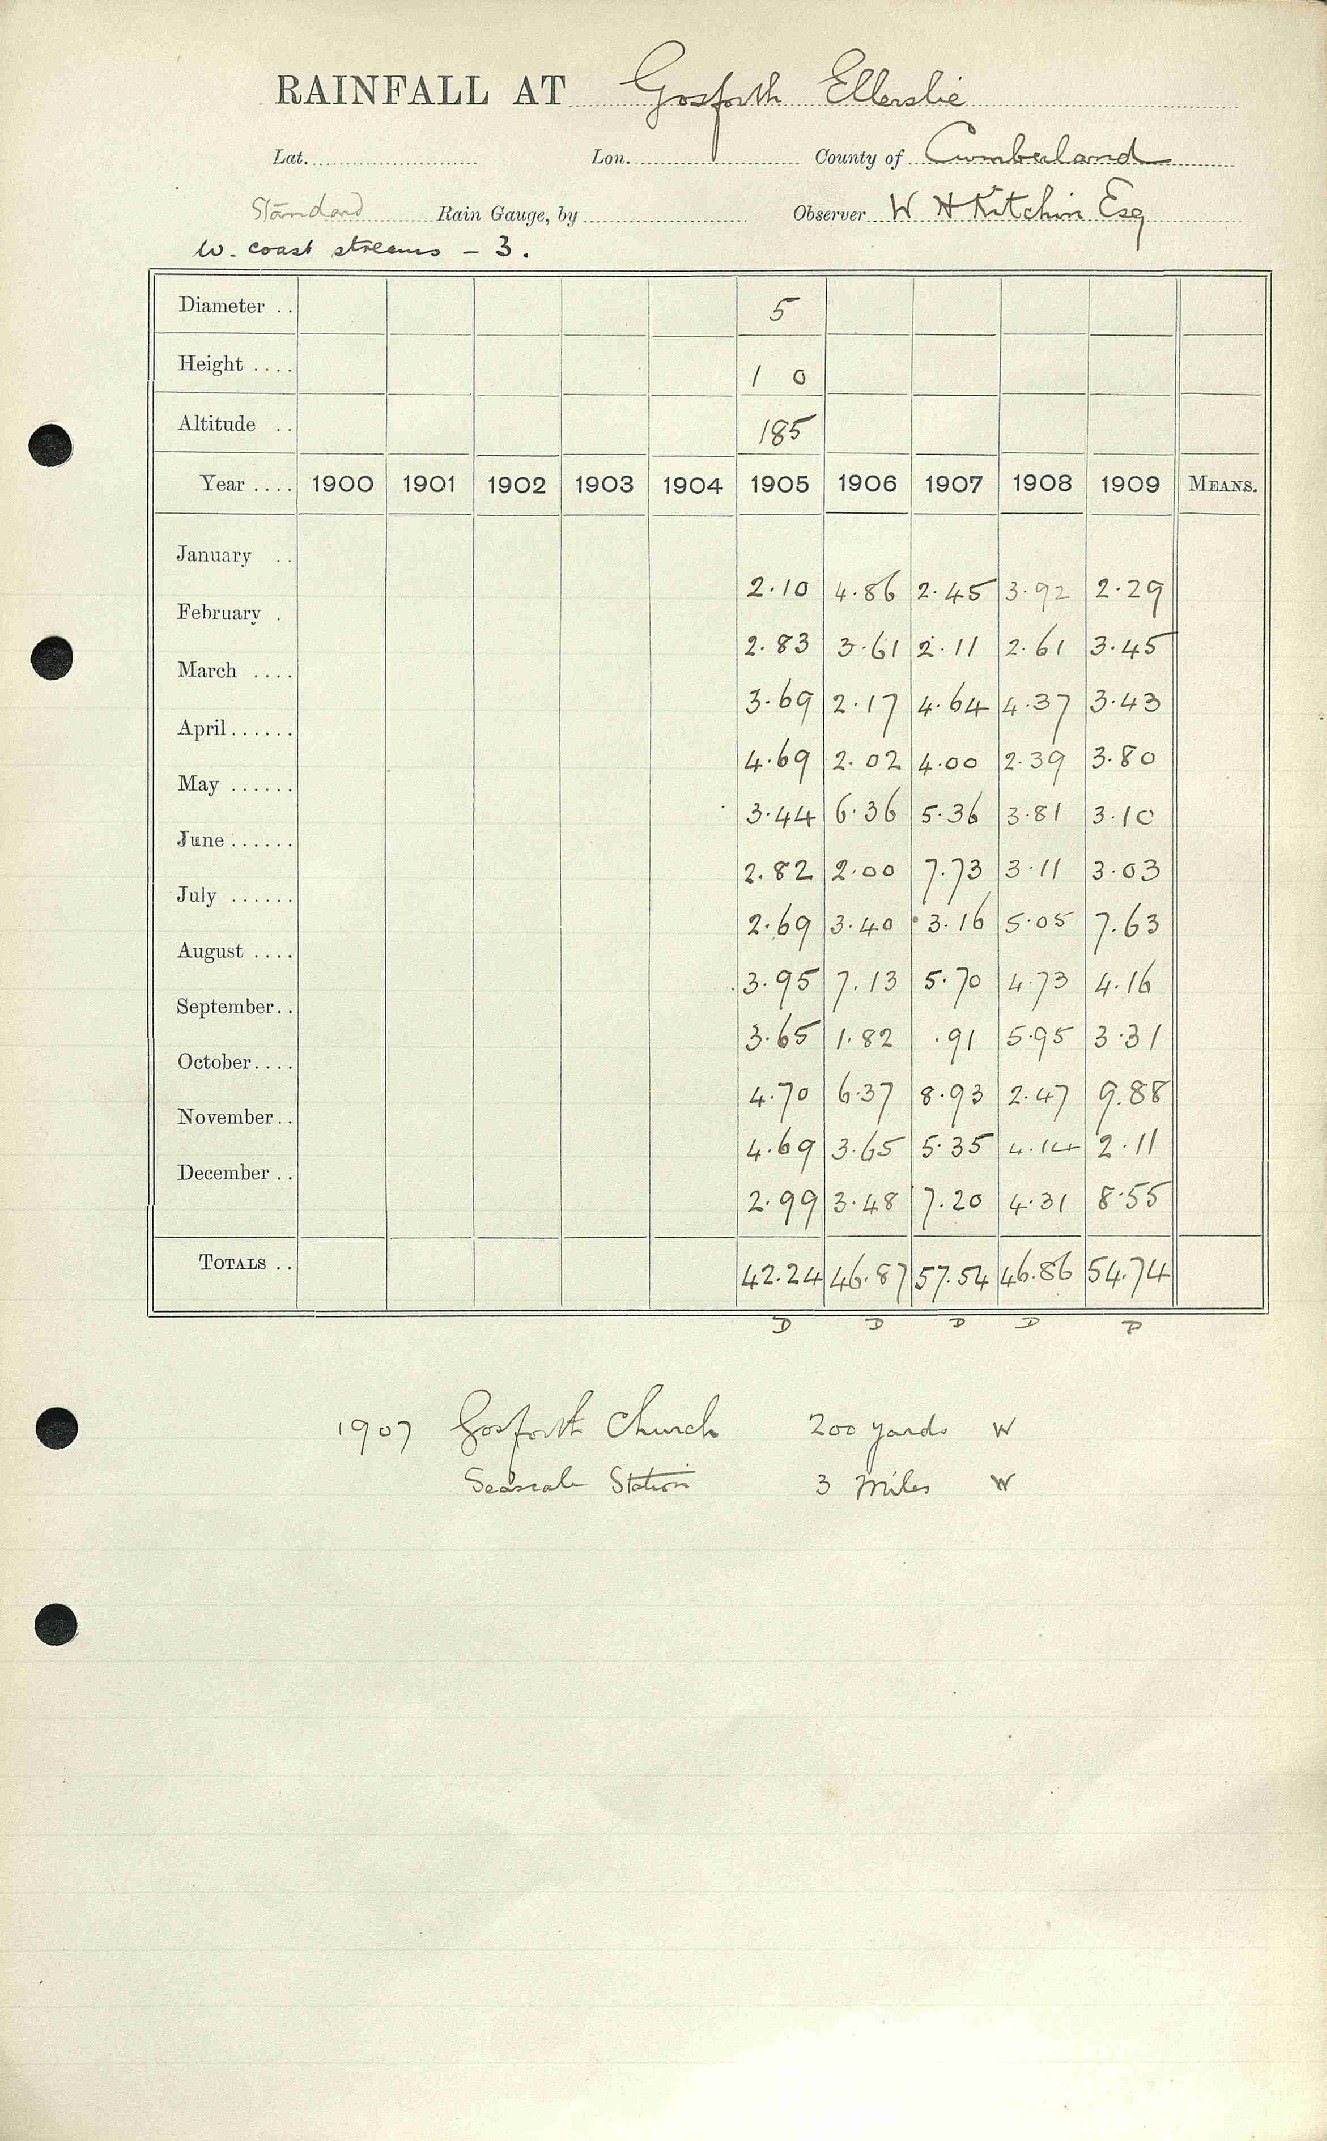 RAINFALL AT Gosforth Ellerslie
Lat. Lon. County of Cumberland
Standard Rain Gauge, by Observer W H Kitchin Esq
W. coast streams - 3.
Diameter .. 5
Height .... 1 0
Altitude .. 185
Year .... 1900 1901 1902 1903 1904 1905 1906 1907 1908 1909 MEANS.
January .. 2.10 4.86 2.45 3.92 2.29
February . 2.83 3.61 2.11 2.61 3.45
March .... 3.69 2.17 4.64 4.37 3.43
April ...... 4.69 2.02 4.00 2.39 3.80
May ...... 3.44 6.36 5.36 3.81 3.10
June ...... 2.82 2.00 7.73 3.11 3.03
July ...... 2.69 3.40 3.16 5.05 7.63
August .... 3.95 7.13 5.70 4.73 4.16
September.. 3.65 1.82 .91 5.95 3.31
October.... 4.70 6.37 8.93 2.47 9.88
November.. 4.69 3.65 5.35 4.14 2.11
December .. 2.99 3.48 7.20 4.31 8.55
TOTALS .. 42.24 46.87 57.54 46.86 54.74
D D D D D
1907 Gosforth Church 200 yards W
Seascale Station 3 Miles W